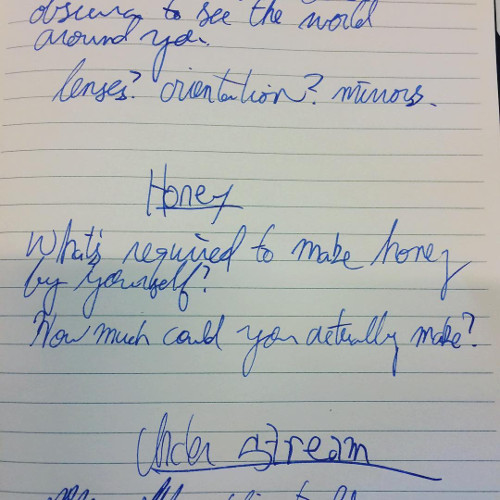 to see the world
around you.
lenses? orientation? mirrors.
Honey
What's required to make honey
by yourself?
How much could you actually make?
Under stream